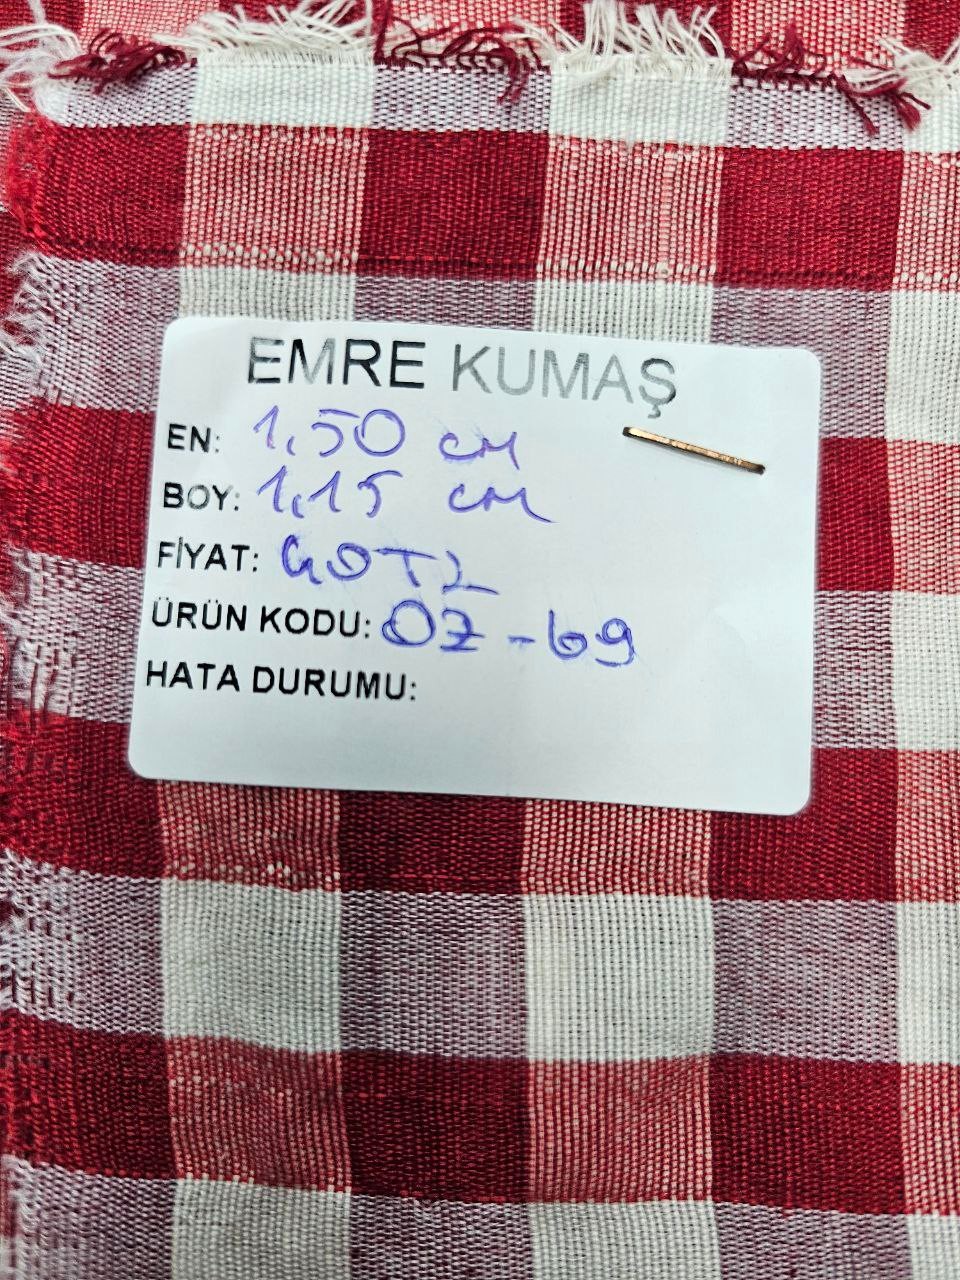 EMRE KUMAŞ
EN: 1,50 cm
BOY: 1,15 cm
FİYAT: 40TL
ÜRÜN KODU: OZ-69
HATA DURUMU: